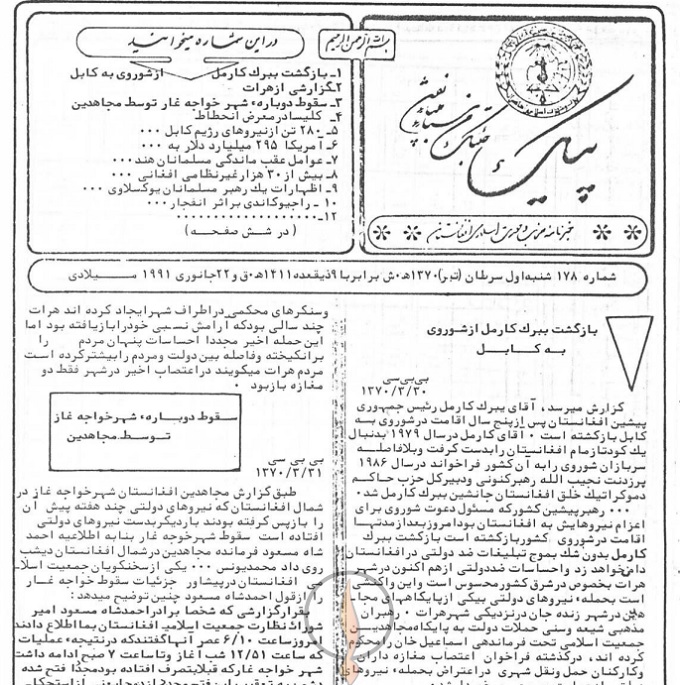 بسم الله الرحمن الرحیم
در این شماره میخوانید
۱ـ بازگشت ببرك كارمل ازشوروی به كابل
۲ـ گزارشی ازهرات
۳ـ سقوط دوباره٬ شهر خواجه غار توسط مجاهدین
۴ـ كلیسا درمعرض انحطاط
۵ـ ۲۸۰ تن ازنیروهای رژیم كابل ۰۰۰
۶ـ امریكا ۲۹۵ میلیارد دلار به ۰۰۰
۷ـ عوامل عقب ماندگی مسلمانان هند ۰۰۰
۸ـ بیش از ۳۰ هزارغیرنظامی افغانی ۰۰۰
۹ـ اظهارات یك رهبر مسلمانان یوگسلاوی ۰۰۰
۱۰ ـ راجیوگاندی براثر انفجار ۰۰۰
۱۲ـ ۰۰۰۰۰۰۰۰۰۰۰۰۰۰۰۰۰
( در شش صفحه )
پیك
شماره ۱۷۸ شنبه اول سرطان (تیر) ۱۳۷۰ هـ ش برابر با ۹ ذیقعده ۱۴۱۱ هـ ق و ۲۲ جانوری ۱۹۹۱ میلادی
بازگشت ببرك كارمل ازشوروی
به كابل
بی بی سی
۱۳۷۰/۳/۳۰
گزارش میرسد، آقای ببرك كارمل رئیس جمهوری
پیشین افغانستان پس ازپنج سال اقامت درشوروی به
كابل بازگشته است ۰ آقای كارمل درسال ۱۹۷۹ بدنبال
یك كودتا زمام افغانستان رابدست گرفت وبلافاصله
سربازان شوروی رابه آن كشور فراخواند درسال ۱۹۸۶
پرزدنت نجیب الله رهبركنونی ودبیركل حزب حاكم
دموكراتیك خلق افغانستان جانشین ببرك كارمل شد۰
۰۰۰ رهبرپیشین كشوركه مسئول دعوت شوروی برای
اعزام نیروهایش به افغانستان بود امروز بعد از مدتها
اقامت درشوروی كشور بازگشته است بازگشت ببرك
كارمل بدون شك بموج تبلیغات ضد دولتی درافغانستان
دامن خواهد زد واحساسات ضددولتی ازهم اكنون درشهر
هرات بخصوص درشرق كشورمحسوس است واین واكنشی
است بحمله٬ نیروهای دولتی بیكی ازپایگاههای
درشهر زنده جان درنزدیكی شهرهرات ۰ رهبران
مذهبی شیعه وسنی حملات دولت به پایگاه مجاهدین
جمعیت اسلامی تحت فرماندهی اسماعیل خان رامحكوم
كرده اند، درگذشته فراخوان اعتصاب مغازه داران
وكاركنان حمل ونقل شهری دراعتراض بحمله٬ نیروهای
وسنگرهای محكمی دراطراف شهرایجاد كرده اند هرات
چند سالی بودكه آرامش نسبی خودرابازیافته بود اما
این حمله اخیر مجددا احساسات پنهان مردم را
برانگیخته وفاصله بین دولت ومردم رابیشتركرده است
مردم هرات میگویند دراعتصاب اخیر درشهر فقط دو
مغازه بازبود ۰
سقوط دوباره٬ شهرخواجه غار
توسط مجاهدین
بی بی سی
۱۳۷۰/۳/۳۱
طبق گزارش مجاهدین افغانستان شهرخواجه غار در
شمال افغانستان كه نیروهای دولتی چند هفته پیش آن
را بازپس گرفته بودند باردیگربدست نیروهای دولتی
افتاده است سقوط شهرخوجه غار بنابه اطلاعیه احمد
شاه مسعود فرمانده مجاهدین درشمال افغانستان دیشب
روی داد محمدیونس ۰۰۰ یكی ازسخنگویان جمعیت اسلا
می افغانستان درپیشاور جزئیات سقوط خواجه غار
ازقول احمدشاه مسعود چنین توضیح میدهد:
قرارگزارشی كه شخصا برادراحمدشاه مسعود امیر
شورای نظارت جمعیت اسلامی افغانستان بما اطلاع دادند
امروزساعت ۶/۱۰ عصر آنهاگفتندكه درنتیجه٬ عملیات
كه ساعت ۱۲/۵۱ شب آغاز وتاساعت ۷ صبح ادامه داشت
شهر خواجه غاركه قبلا بتصرف افتاده بود مجددا فتح شده